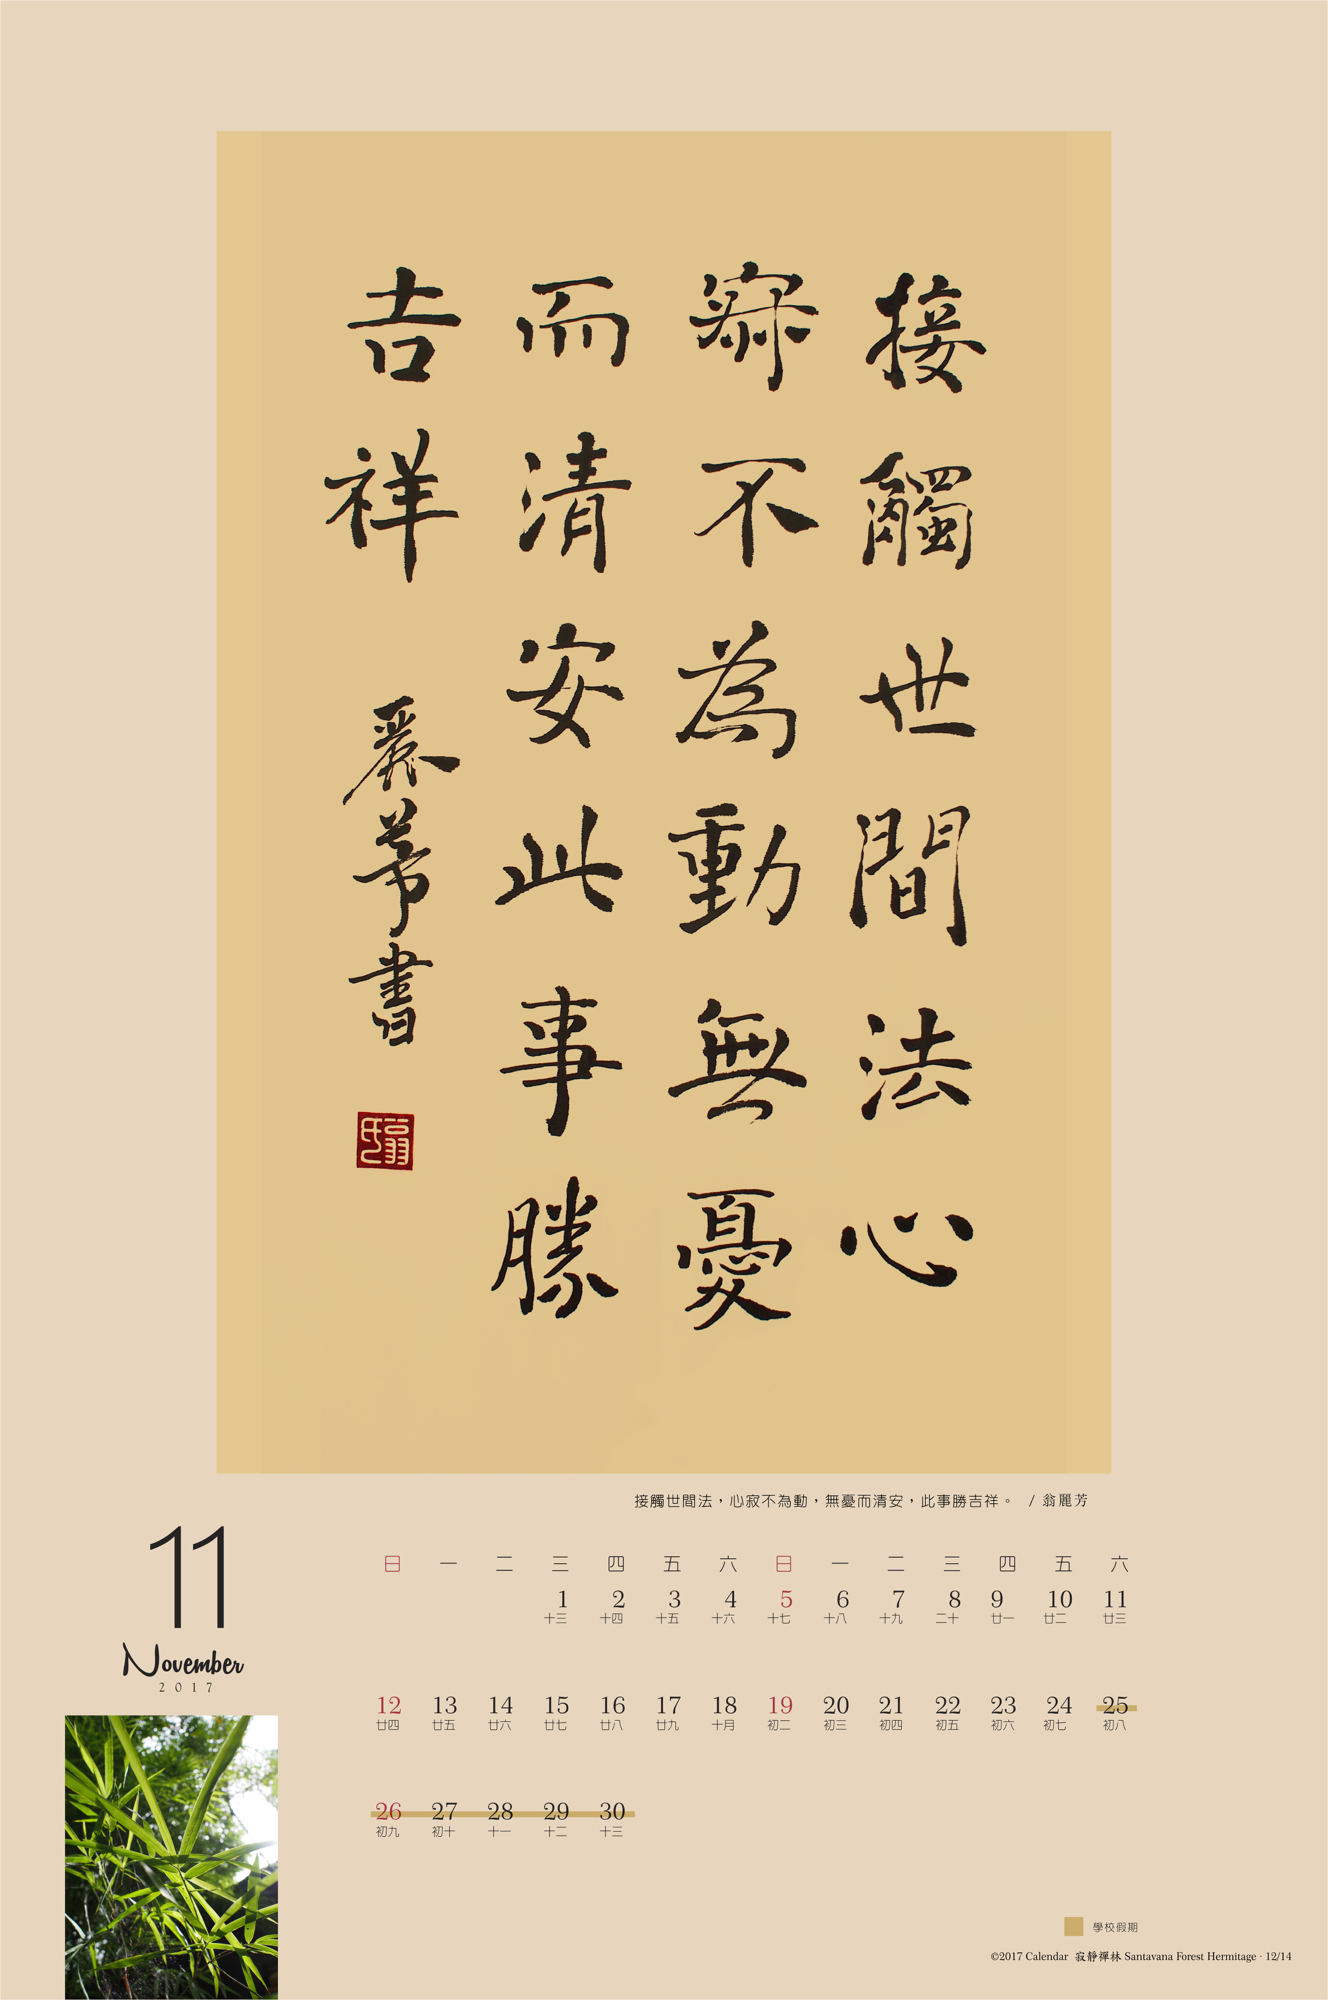 接觸世間法心
寂不為動無憂
而清安此事勝
吉祥
麗芳書
接觸世間法，心寂不為動，無憂而清安，此事勝吉祥。 / 翁麗芳
11
November
2017
日 一 二 三 四 五 六 日 一 二 三 四 五 六
1 2 3 4 5 6 7 8 9 10 11
十三 十四 十五 十六 十七 十八 十九 二十 廿一 廿二 廿三
12 13 14 15 16 17 18 19 20 21 22 23 24 25
廿四 廿五 廿六 廿七 廿八 廿九 十月 初二 初三 初四 初五 初六 初七 初八
26 27 28 29 30
初九 初十 十一 十二 十三
學校假期
©2017 Calendar 寂靜禪林 Santavana Forest Hermitage · 12/14